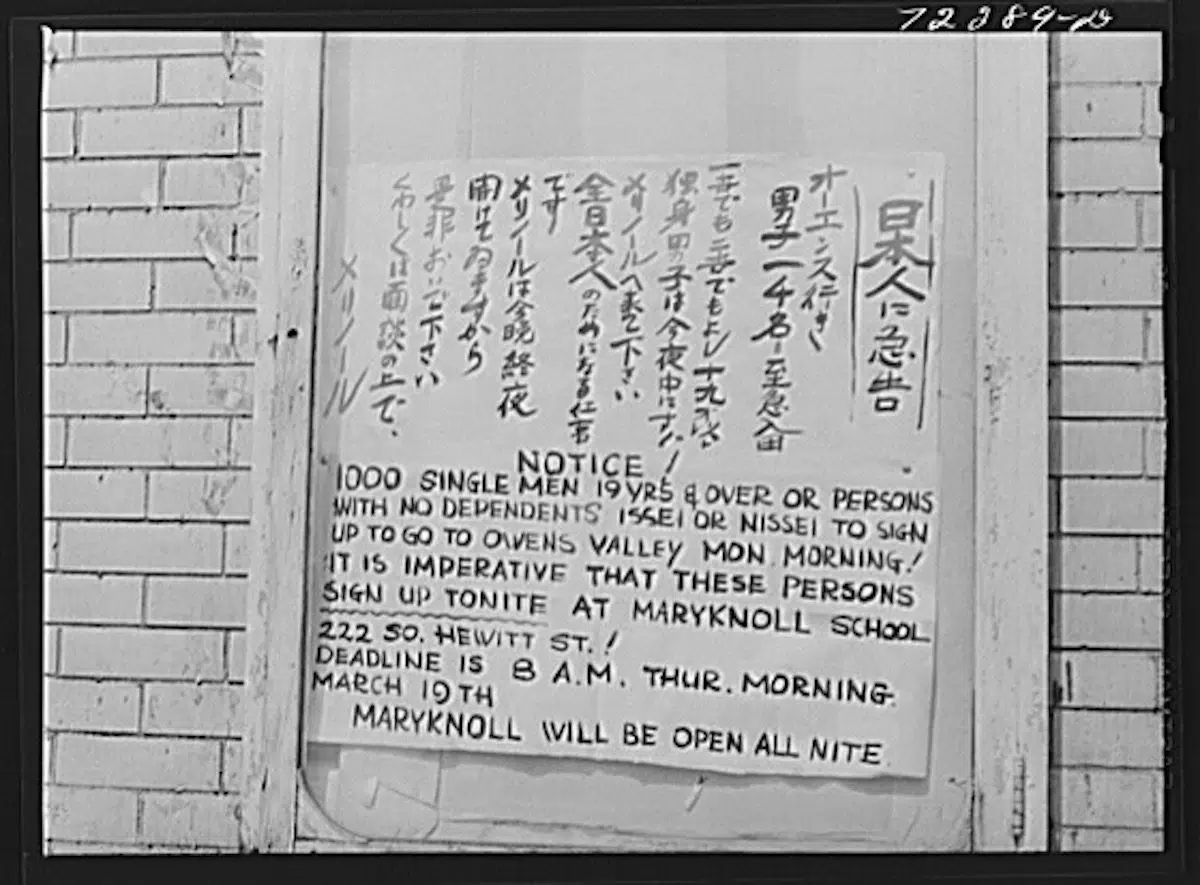 72389-D
日本人に急告
オーエンス行き
男子一千名至急入用
一世でも二世でもよし十九才以
独身男子は今夜中に
メリノールへ来て下さい
全日本人のためになる仕事
です
メリノールは今晩終夜
開けてゐますから
是非おいで下さい
くわしくは面談の上で、
メリノール
NOTICE!
1000 SINGLE MEN 19 YRS & OVER OR PERSONS
WITH NO DEPENDENTS ISSEI OR NISSEI TO SIGN
UP TO GO TO OWENS VALLEY MON. MORNING!
IT IS IMPERATIVE THAT THESE PERSONS
SIGN UP TONITE AT MARYKNOLL SCHOOL
222 SO. HEWITT ST.!
DEADLINE IS 8 A.M. THUR. MORNING.
MARCH 19TH
MARYKNOLL WILL BE OPEN ALL NITE.